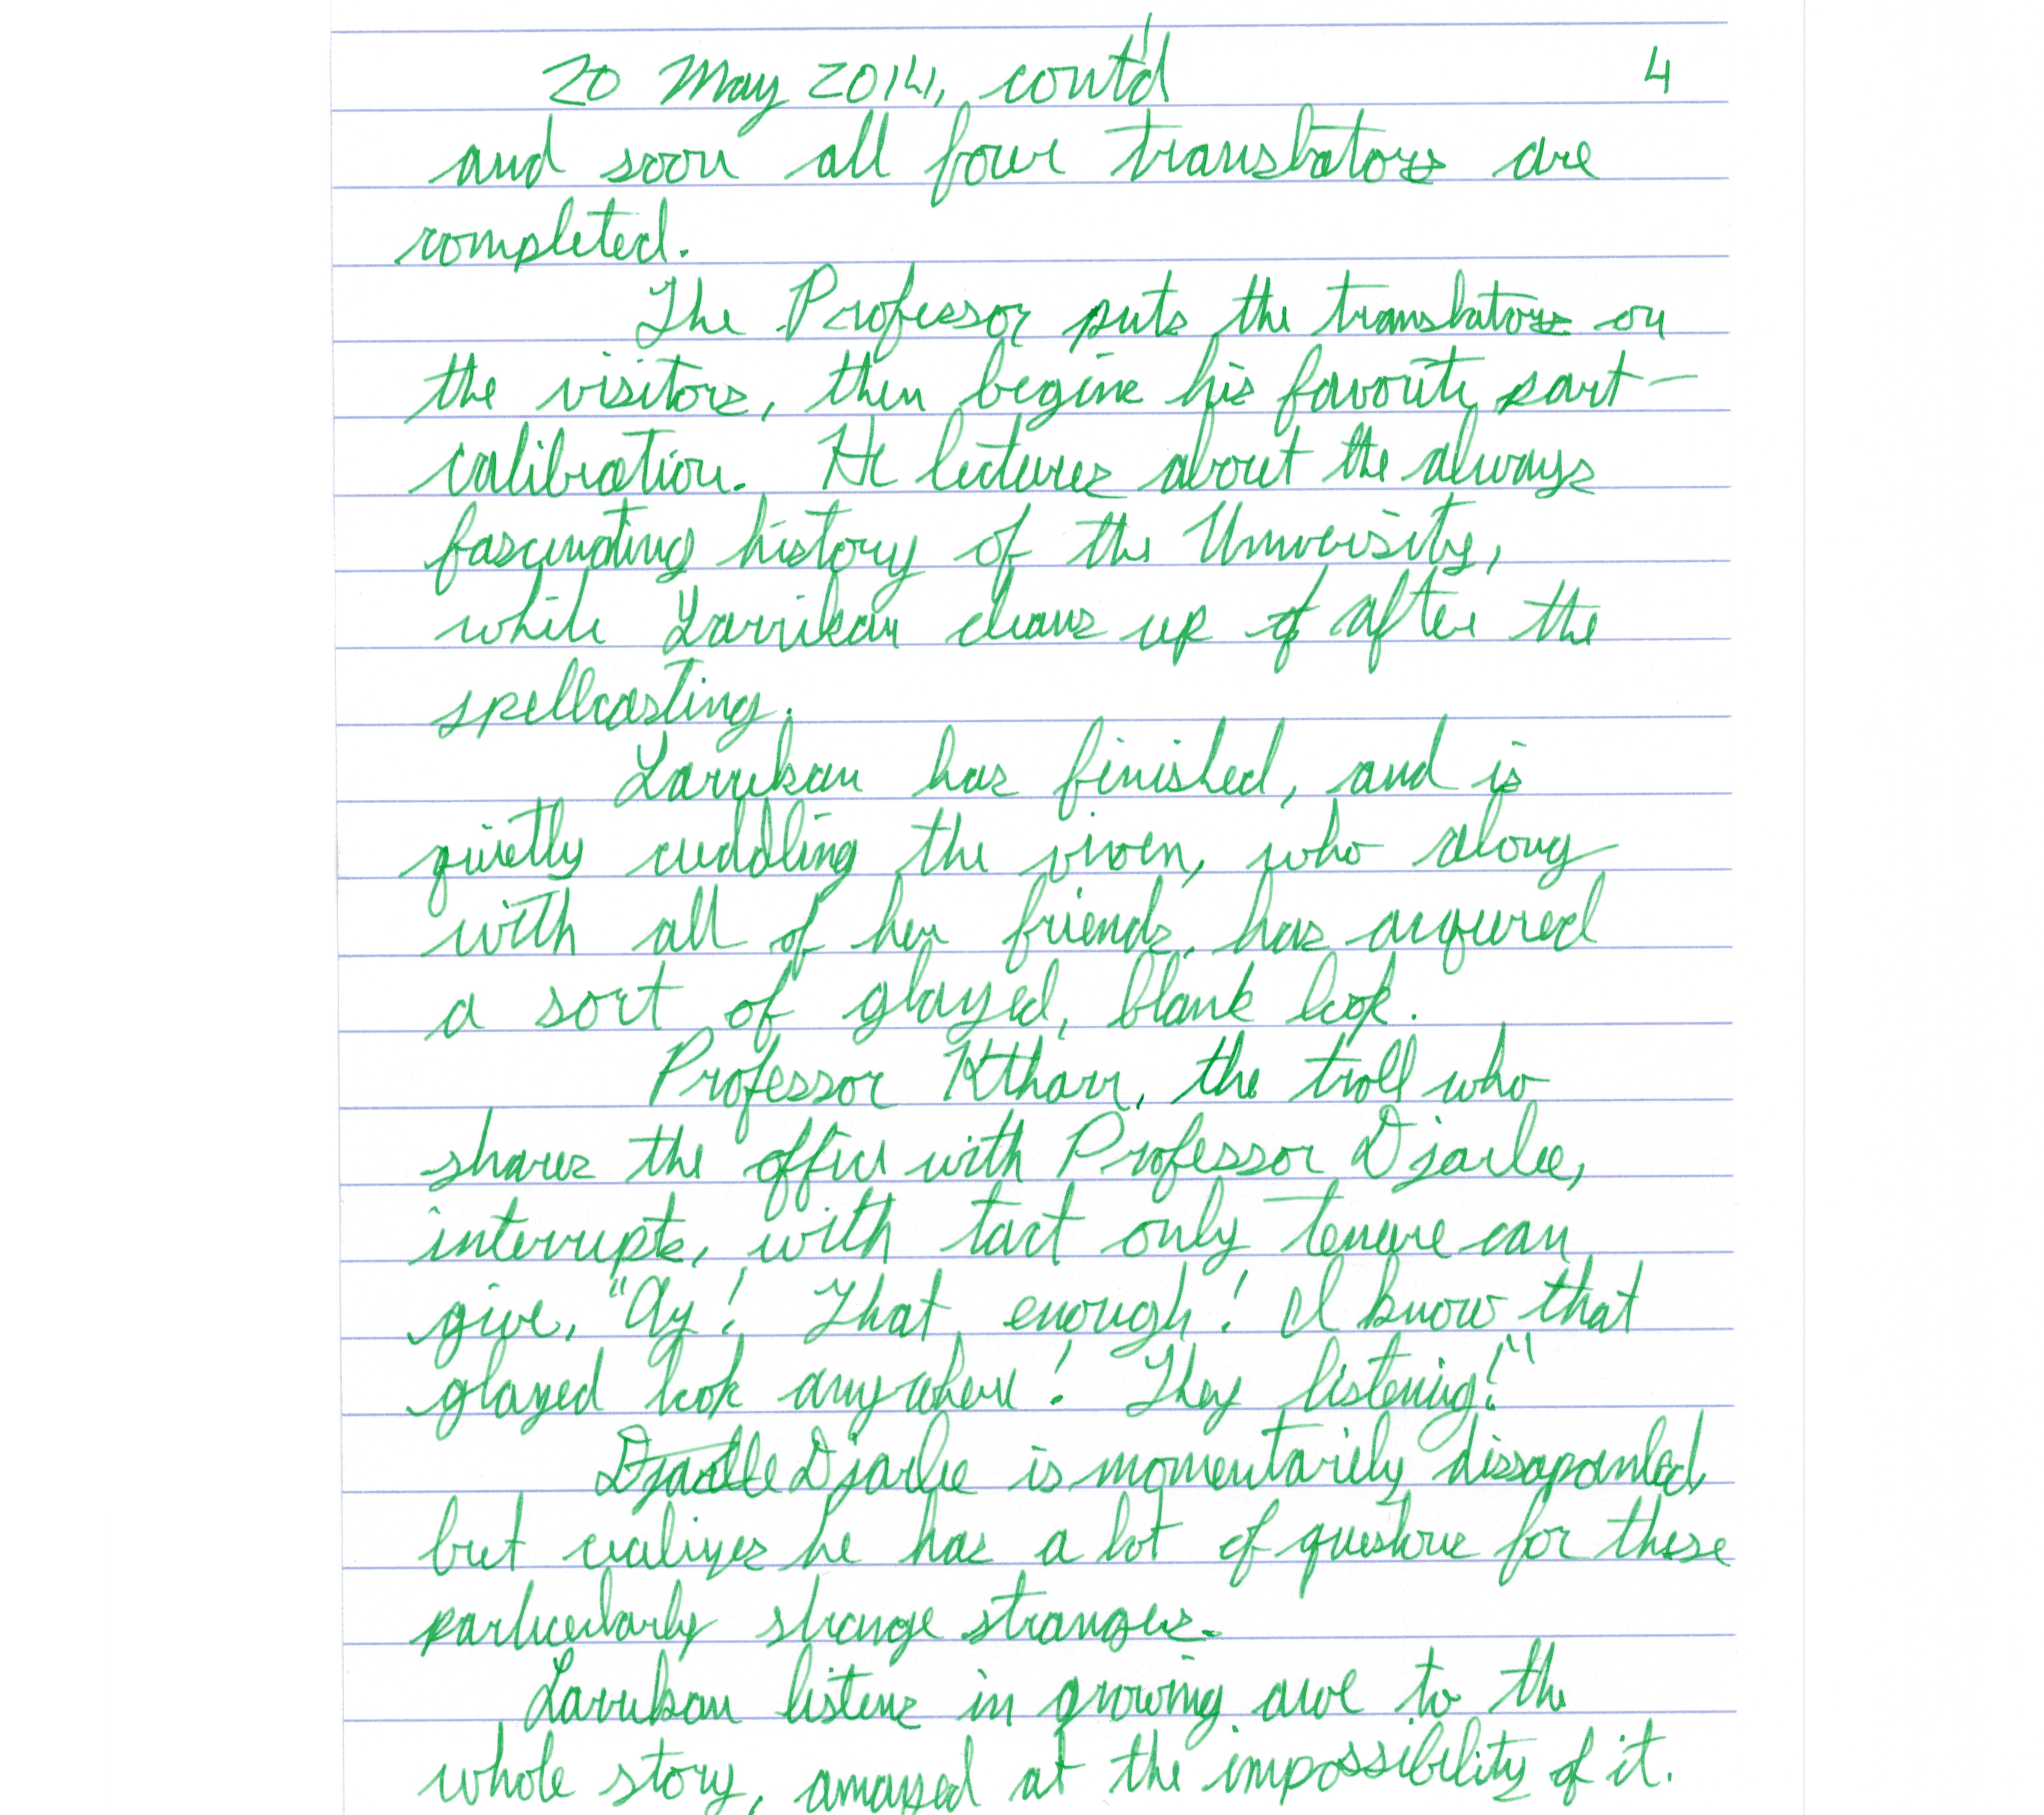 20 May 2014, cont'd 4
and soon all four translators are
completed.
The Professor puts the translators on
the visitors, then begins his favorite part—
calibration. He lectures about the always
fascinating history of the University,
while Larrikan cleans up after the
spellcasting.
Larrikan has finished, and is
quietly cuddling the vixen, who along
with all of her friends, has acquired
a sort of glazed, blank look.
Professor Ktharr, the troll who
shares the office with Professor Djarlee,
interrupts, with tact only tenure can
give, "Ay! That enough! I know that
glazed look anywhere! They listening!"
Djarlee is momentarily dissapointed,
but realizes he has a lot of questions for these
particularly strange strangers.
Larrikan listens in growing awe to the
whole story, amazed at the impossibility of it.